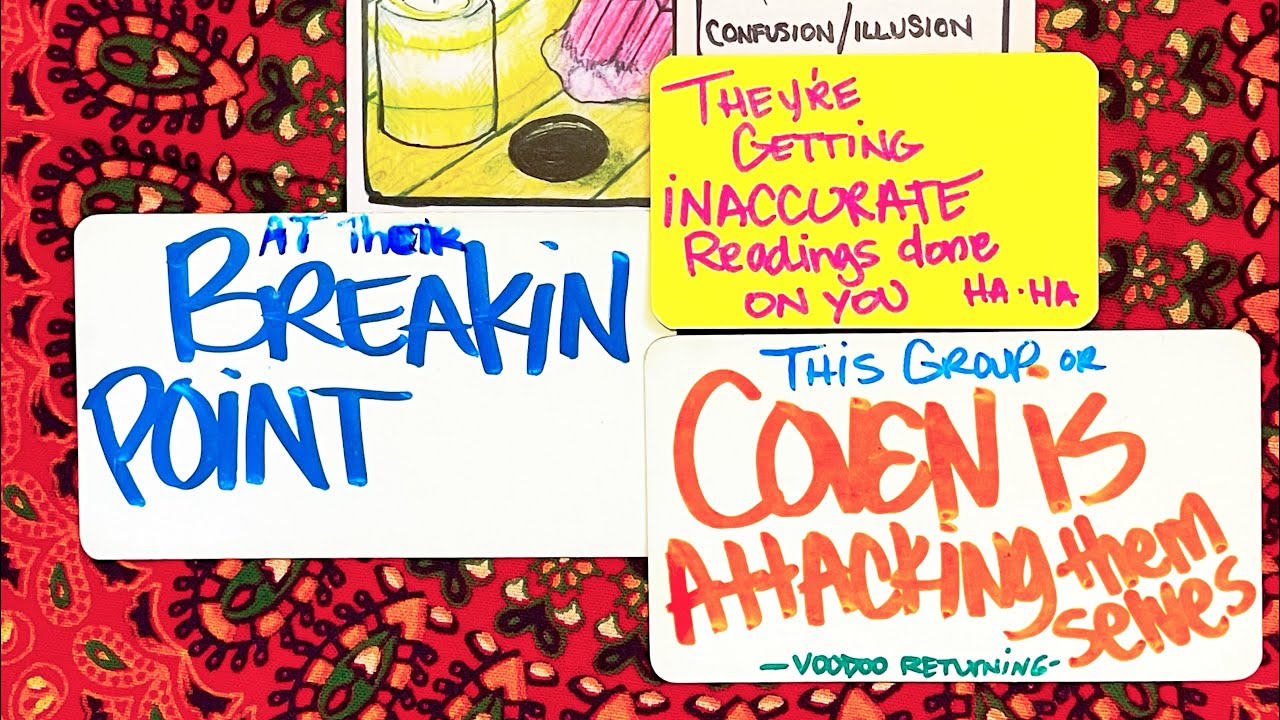 CONFUSION/ILLUSION
THEY'RE
GETTING
INACCURATE
Readings done
ON YOU HA·HA
AT Their
BREAKIN
POINT
THIS GROUP OR
COVEN is
ATTACKING them
selves
-VOODOO RETURNING-